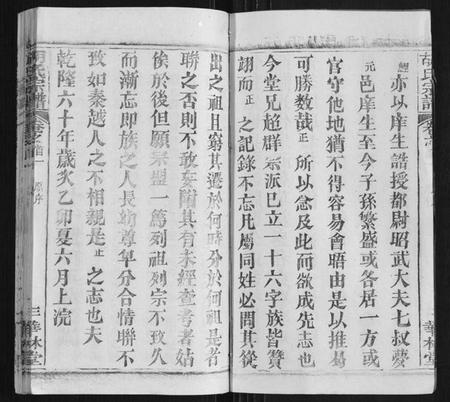 亦以庠生誥授都尉昭武大夫七叔夢
元邑庠生至今子孫繁盛或各居一方或
官守他地猶不得容易會晤由是以推曷
可勝數哉正所以念及此而欲成先志也
今堂兄超群宗派已立一十六字族皆贊
詡而正之記錄不忘凡屬同姓必問其從
出之祖且窮其遷於何時分於何祖是者
聯之否則不敢妄附其有未經查考者姑
俟於後但願宗盟一篤列祖列宗不致久
而漸忘即族之人長幼尊卑分合情聯不
致如秦越人之不相親是正之志也夫
乾隆六十年歲次乙卯夏六月上浣
胡氏宗譜
卷之首
原序
三
華林堂
胡氏宗譜
華林堂